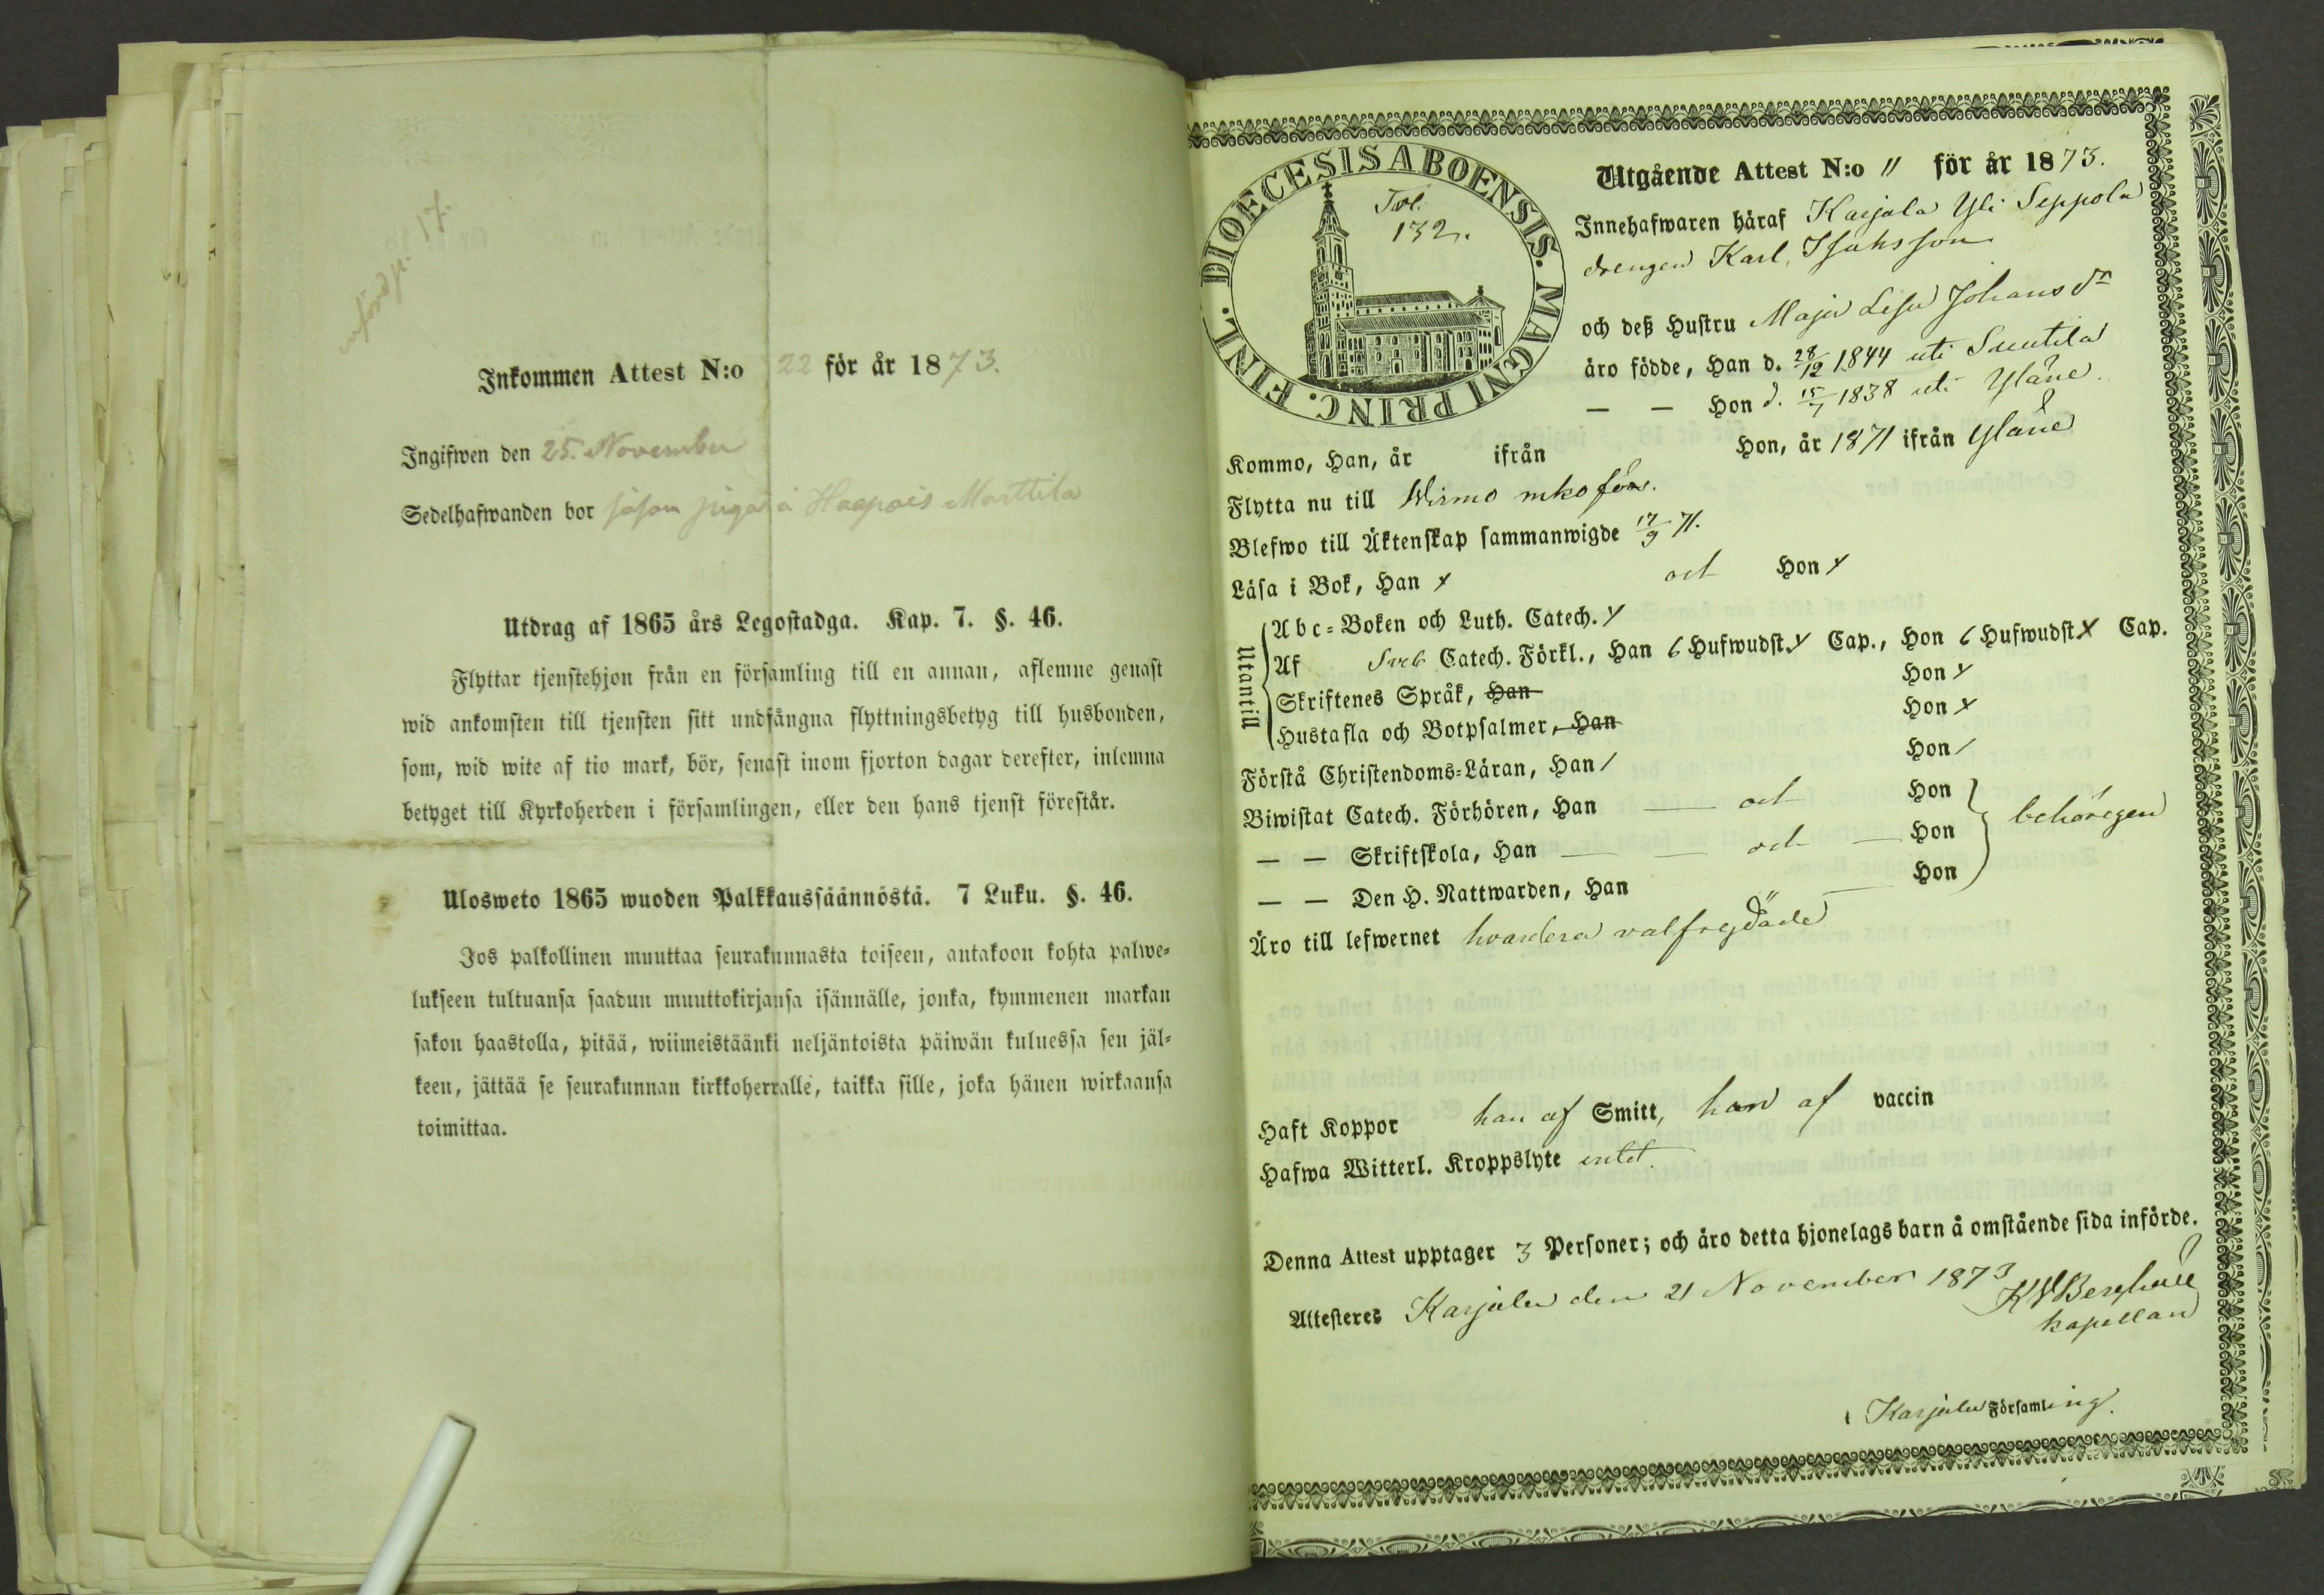 införd p. 17.
Inkommen Attest N:o 22 för år 1873.
Ingifwen den 25. November
Sedelhafwanden bor såsom piga å Haapois Marttila
Utdrag af 1865 års Legostadga. Kap. 7. §. 46.
Flyttar tjenstehjon från en församling till en annan, aflemne genast
wid ankomsten till tjensten sitt undfångna flyttningsbetyg till husbonden,
som, wid wite af tio mark, bör, senast inom fjorton dagar derefter, inlemna
betyget till Kyrkoherden i församlingen, eller den hans tjenst förestår.
Ulosweto 1865 wuoden Palkkaussäännöstä. 7 Luku. §. 46.
Jos palkollinen muuttaa seurakunnasta toiseen, antakoon kohta palwe-
lukseen tultuansa saadun muuttokirjansa isännälle, jonka, kymmenen markan
sakon haastolla, pitää, wiimeistäänki neljäntoista päiwän kuluessa sen jäl-
keen, jättää se seurakunnan kirkkoherralle, taikka sille, joka hänen wirkaansa
toimittaa.
DIOECESIS ABOENSIS. MAGNI PRINC. FINL.
132.
Utgående Attest N:o 11 för år 1873.
Innehafwaren häraf Karjala Yli Seppola
drengen Karl Isaksson
och deß Hustru Maja Lisa Johansdr
äro födde, Han d. 28/12 1844 uti Suutila
— — Hon d. 15/7 1838 uti Yläne.
Kommo, Han, år ifrån Hon, år 1871 ifrån Yläne
Flytta nu till Wirmo mko förs.
Blefwo till Äktenskap sammanwigde 17/9 71.
Läsa i Bok, Han x och Hon x
Utantill
Abc-Boken och Luth. Catech. x
Af Sveb Catech. Förkl., Han 6 Hufwudst. x Cap., Hon 6 Hufwudst x Cap.
Skriftenes Språk, Han Hon x
Hustafla och Botpsalmer, Han Hon x
Förstå Christendoms-Läran, Han / Hon /
Biwistat Catech. Förhören, Han — och Hon
— — Skriftskola, Han — — och — Hon behörigen
— — Den H. Nattwarden, Han — Hon
Äro till lefwernet hvardera valfrejdade
Haft Koppor han af Smitt, hon af vaccin
Hafwa Witterl. Kroppslyte intet.
Denna Attest upptager 3 Personer; och äro detta hjonelags barn å omstående sida införde.
Attesteres Karjala den 21 November 1873
kapellan
i Karjala Församling.